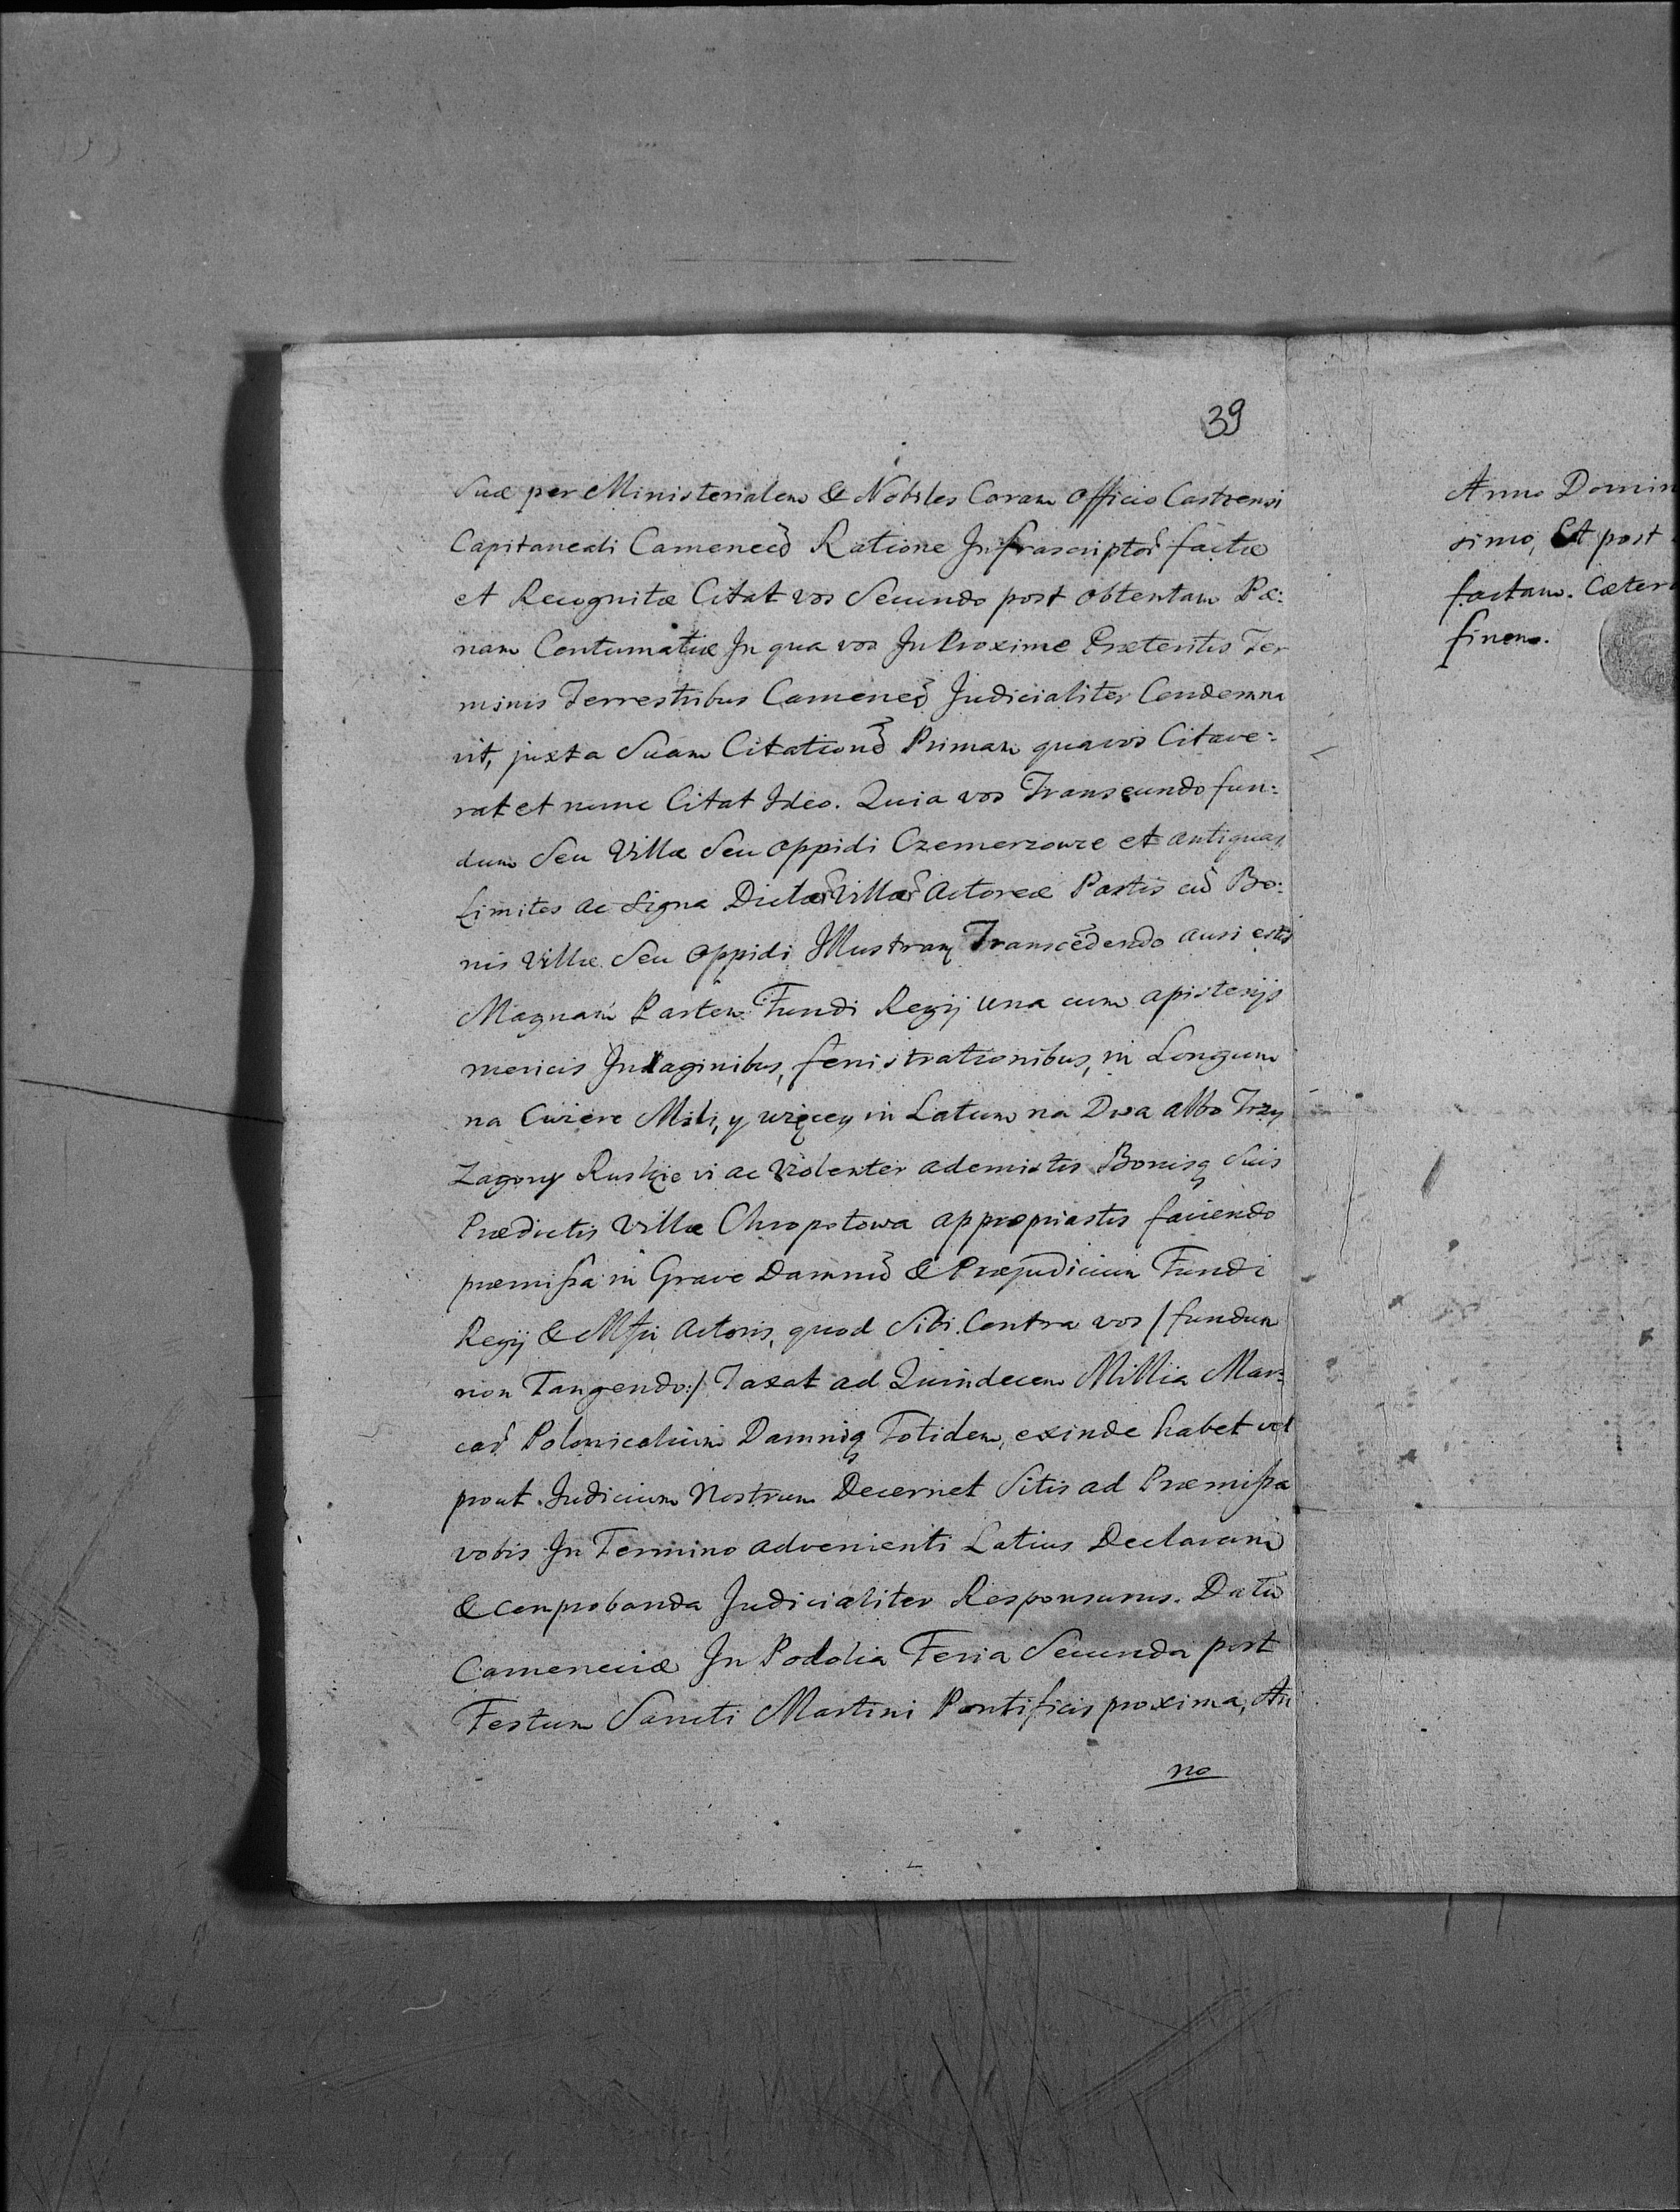 39
Suæ per Ministerialem & Nobiles Coram Officio Castrensi
Capitaneali Camenecen̄ Ratione Infrascriptor̄ factæ
et Recognitæ Citat vos Secundo post obtentam Pæ:
nam Contumatiæ In qua vos In Proxime Præteritis Ter
minis Terrestribus Camenec̄ Judicialiter Condemna
vit, juxta Suam Citationē Primam qua vos Citave:
rat et nunc Citat Ideo. Quia vos Transeundo fun:
dum Seu Villæ Seu Oppidi Czemerzowce et antiquas
Limites ac Signa Dictar̄ Villar̄ Actoreæ Partis cū Bo:
nis Villæ Seu Oppidi Illustram Transcēdendo ausi estis
Magnam Partem Fundi Regij una cum apisterijs
mericis Indaginibus, fenistrationibus, in Longum
na Cwierc Mili, y więcey in Latum na Dwa albo Trzy
Zagony Ruskie vi ac Violenter ademistis Bonisq Suis
Prædictis Villæ Chropotowa appropriastis faciendo
præmissa in Grave Damnū & Præjudicium Fundi
Regij & Mfci Actoris, quod Sibi Contra vos /fundum
non Tangendo:/ Taxat ad Quindecem Millia Mar:
car̄ Polonicalium Damniq Totidem, exinde habet vel
prout Judicium Nostrum Decernet Sitis ad Præmissa
vobis In Termino advenienti Latius Declaran̄
& comprobanda Judicialiter Responsurus. Datū
Cameneciæ In Podolia Feria Secunda post
Festum Sancti Martini Pontificis proxima, An
no
Anno Domin
simo, Et post
factam. Cæter
finem.